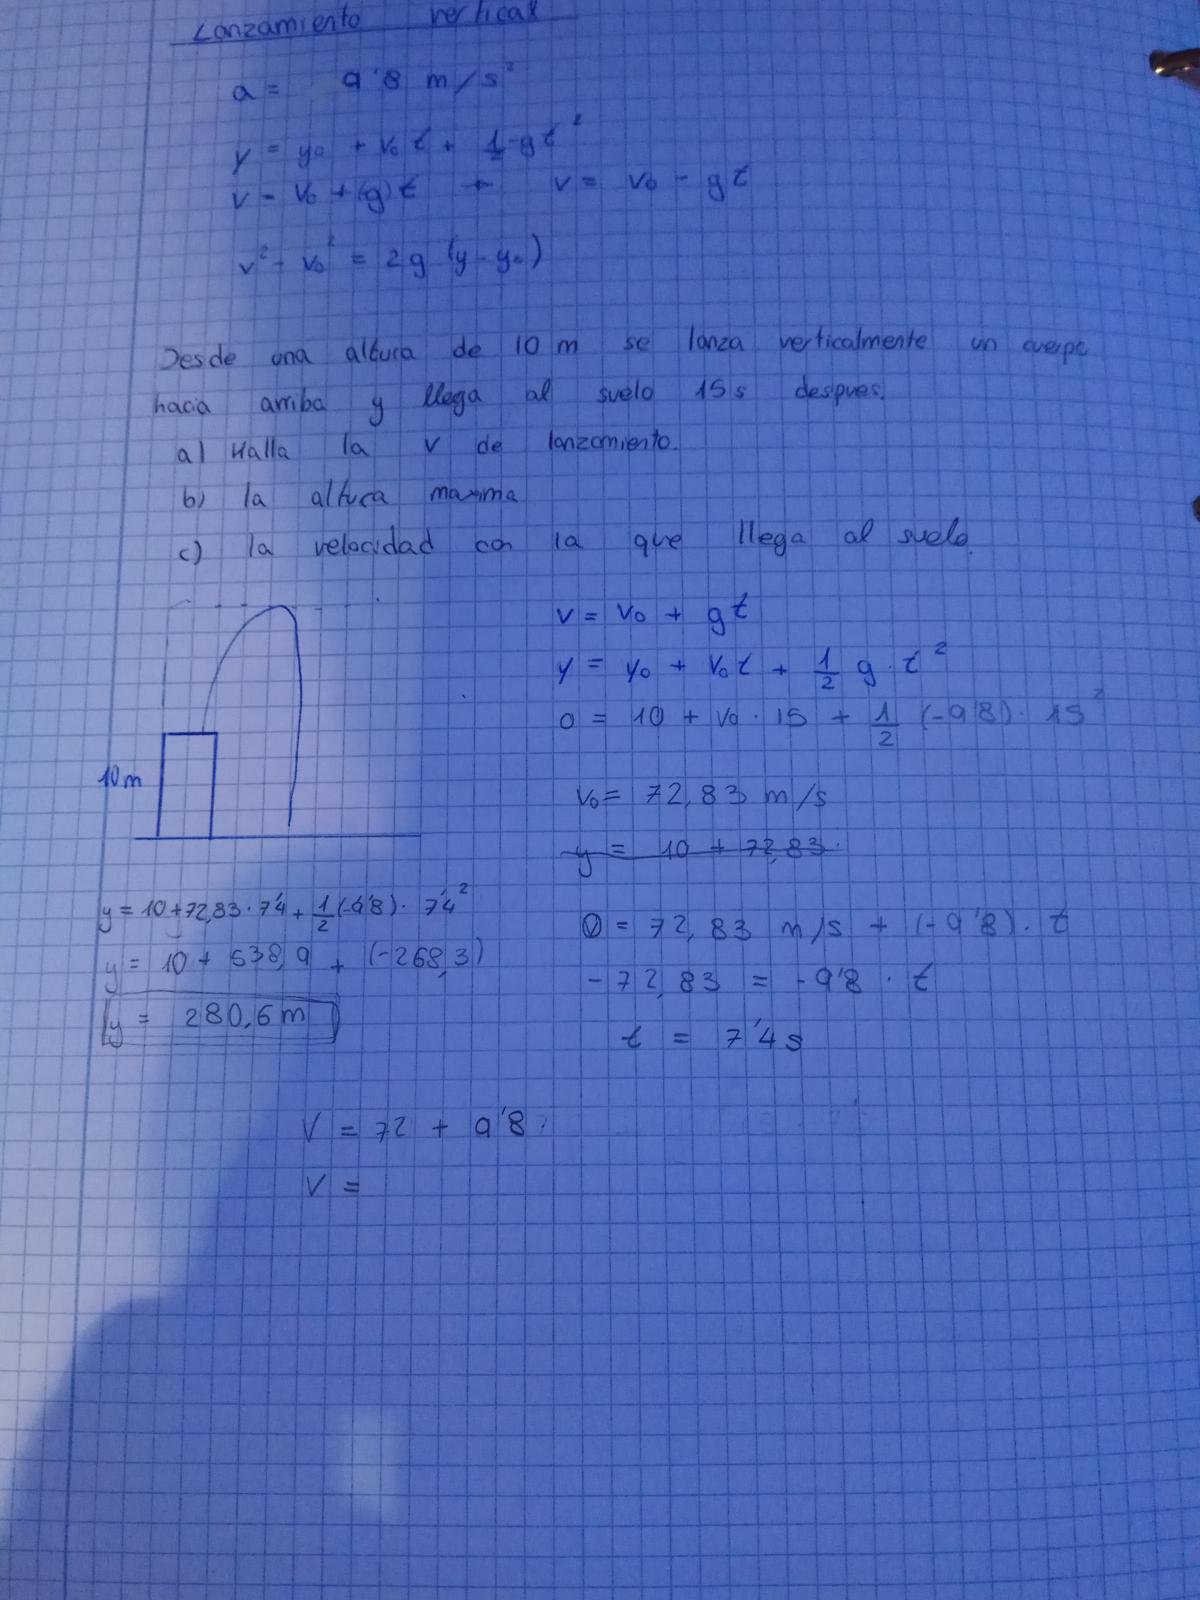 Lanzamiento vertical
a = 9'8 m/s²
y = y₀ + v₀ t + 1/2 - g t²
v = v₀ + (g) t v = v₀ - g t
v² - v₀² = 2g (y - y₀)
Desde una altura de 10 m se lanza verticalmente un cuerpo
hacia arriba y llega al suelo 15 s despues.
a) Halla la v de lanzamiento.
b) la altura maxima
c) la velocidad con la que llega al suelo.
v = v₀ + g t
y = y₀ + v₀ t + 1/2 g · t²
0 = 10 + v₀ · 15 + 1/2 (-9'8) · 15²
10 m
v₀ = 72,83 m/s
y = 10 + 72,83 ·
y = 10 + 72,83 · 7'4 + 1/2 (-9'8) · 7'4²
y = 10 + 538,9 + (-268,3)
y = 280,6 m
0 = 72,83 m/s + (-9'8) · t
-72,83 = -9'8 · t
t = 7'4 s
V = 72 + 9'8 ·
V =